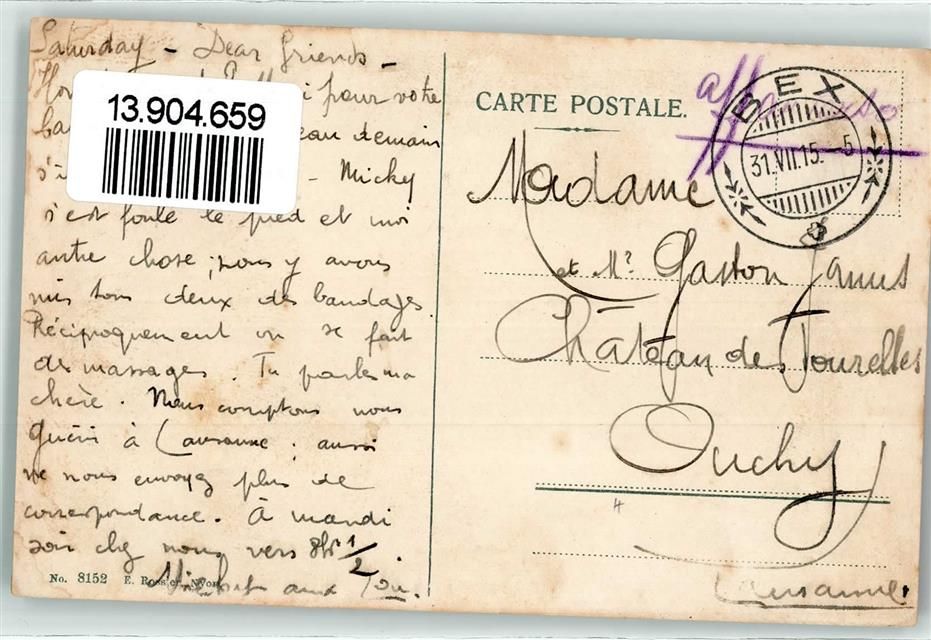 Saturday - Dear Friends -
pour votre
demain
13.904.659
s'i - Micky
s'est foulé le pied et moi
autre chose, nous y avons
mis tous deux des bandages
Réciproquement on se fait
des massages. Tu parles ma
chère. Nous comptons nous
guérir à Lausanne, aussi
ne nous envoyez plus de
correspondance. À mardi
soir chez nous vers 8h 1/2.
No. 8152 E. Rossier, Nyon
CARTE POSTALE.
BEX
31.VII.15.-5
Madame
et Mr Gaston
Château des Tourelles
Ouchy
Lausanne.